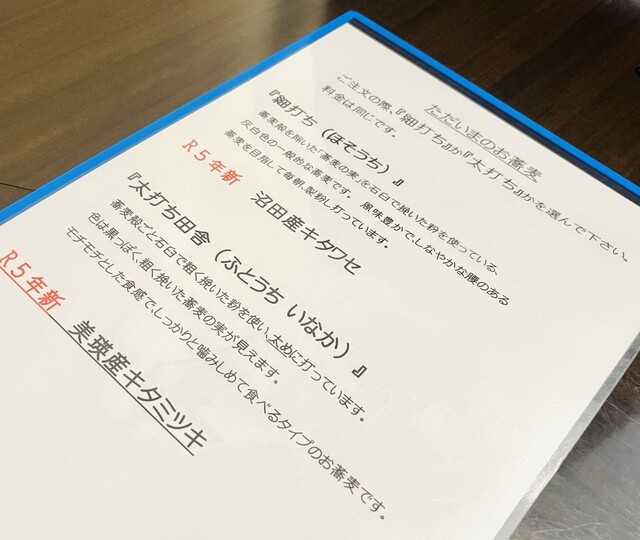 ただいまのお蕎麦
ご注文の際、『細打ち』か『太打ち』かを選んで下さい。
料金は同じです。
『細打ち（ほそうち）』
蕎麦殻を除いた「蕎麦の実」を石臼で挽いた粉を使っている、
灰白色の一般的な蕎麦です。 風味豊かでしなやかな腰のある
蕎麦を目指して毎朝、製粉し打っています。
R５年新 沼田産キタワセ
『太打ち田舎（ふとうち いなか）』
蕎麦殻ごと石臼で粗く挽いた粉を使い、太めに打っています。
色は黒っぽく、粗く挽いた蕎麦の実が見えます。
モチモチとした食感で、しっかりと噛みしめて食べるタイプのお蕎麦です。
R５年新 美瑛産キタミツキ